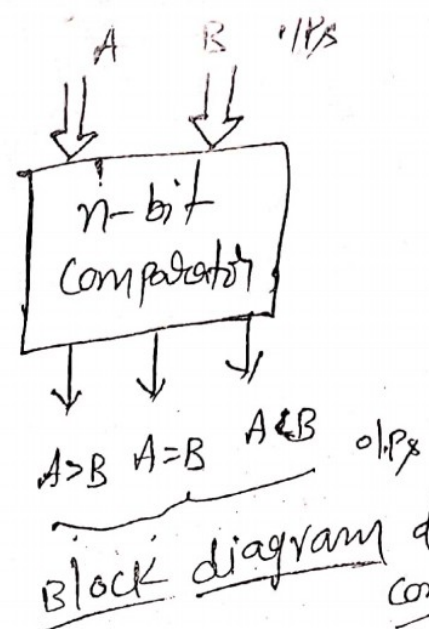 A B i/Ps
n-bit
comparator
A>B A=B A<B o/Ps
Block diagram